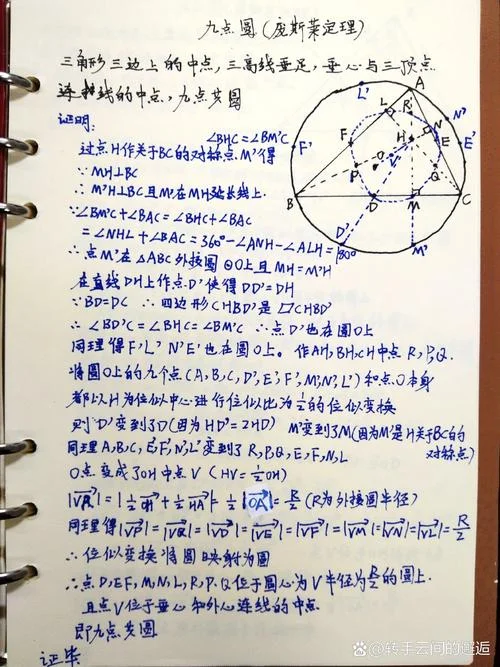 九点圆(庞斯莱定理)
三角形三边上的中点,三高线垂足,垂心与三顶点
连线的中点,九点共圆
证明:
∠BHC=∠BM'C
过点H作关于BC的对称点M'得
∵MH⊥BC
∴M'H⊥BC且M'在MH延长线上.
∵∠BM'C+∠BAC=∠BHC+∠BAC
=∠NHL+∠BAC=360°-∠ANH-∠ALH=180°
∴点M'在△ABC外接圆⊙O上且MH=M'H
在直线DH上作点D'使得DD'=DH
∵BD=DC ∴四边形CHBD'是▱CHBD'
∴∠BD'C=∠BHC=∠BM'C ∴点D'也在圆O上
同理得F'L'N'E'也在圆O上。作AH,BH,CH中点R,P,Q.
将圆O上的九个点(A,B,C,D',E',F',M',N',L')和点O本身
都以H为位似中心进行位似比为1/2的位似变换
则D'变到了D(因为HD'=2HD) M'变到了M(因为M'是H关于BC的
对称点)
同理A,B,C,E',F',N',L'变到了R,P,Q,E,F,N,L
O点变成了OH中点V(HV=1/2OH)
|VR|=|1/2OH+1/2HA|=1/2|OA|=R/2(R为外接圆半径)
同理得|VP|=|VQ|=|VD|=|VE|=|VF|=|VM|=|VN|=|VL|=R/2
∴位似变换将圆映射为圆
∴点D,E,F,M,N,L,R,P,Q位于圆心为V半径为R/2的圆上.
且点V位于垂心和外心连线的中点
即九点共圆
证毕
A
L'
L
R
N
N'
F'
F
H
E
E'
P
O
V
Q
B
D
M
C
D'
M'
@转手云间的邂逅